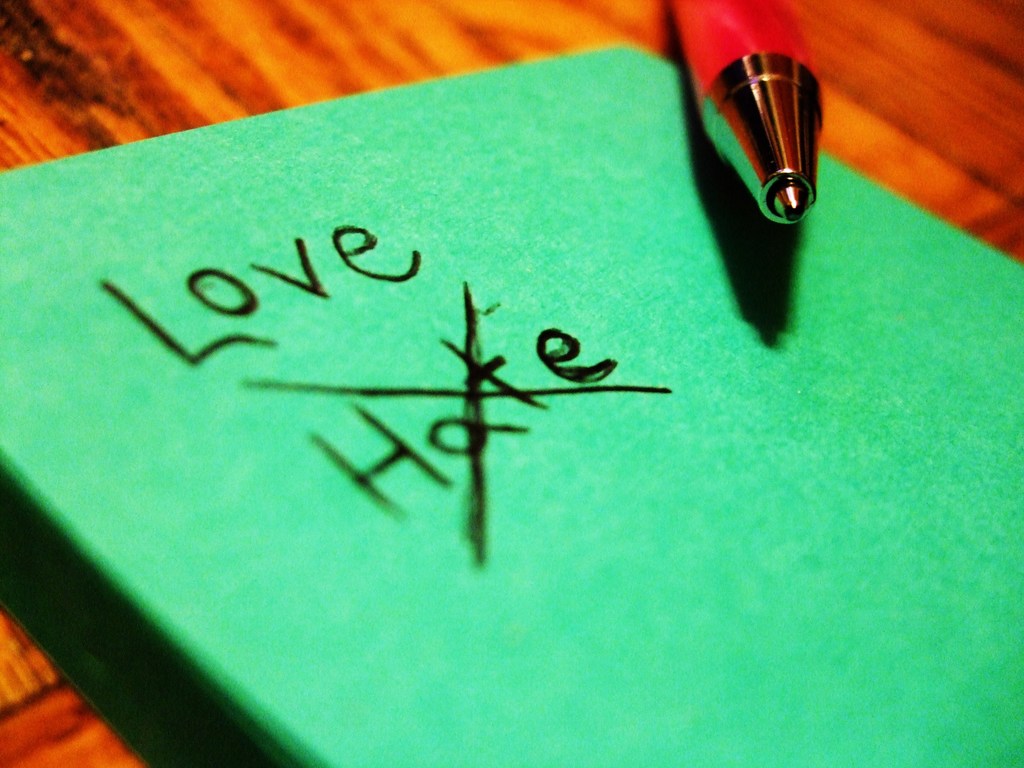 Love
Hate